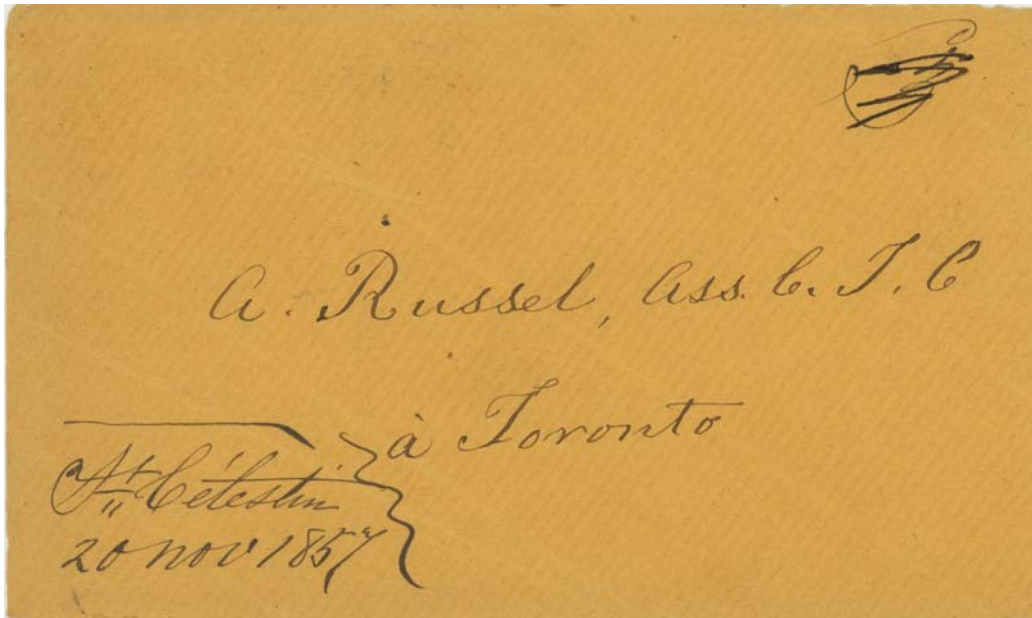 A. Russel, Ass. C. T. C
à Toronto
St Célestin
20 nov 1857